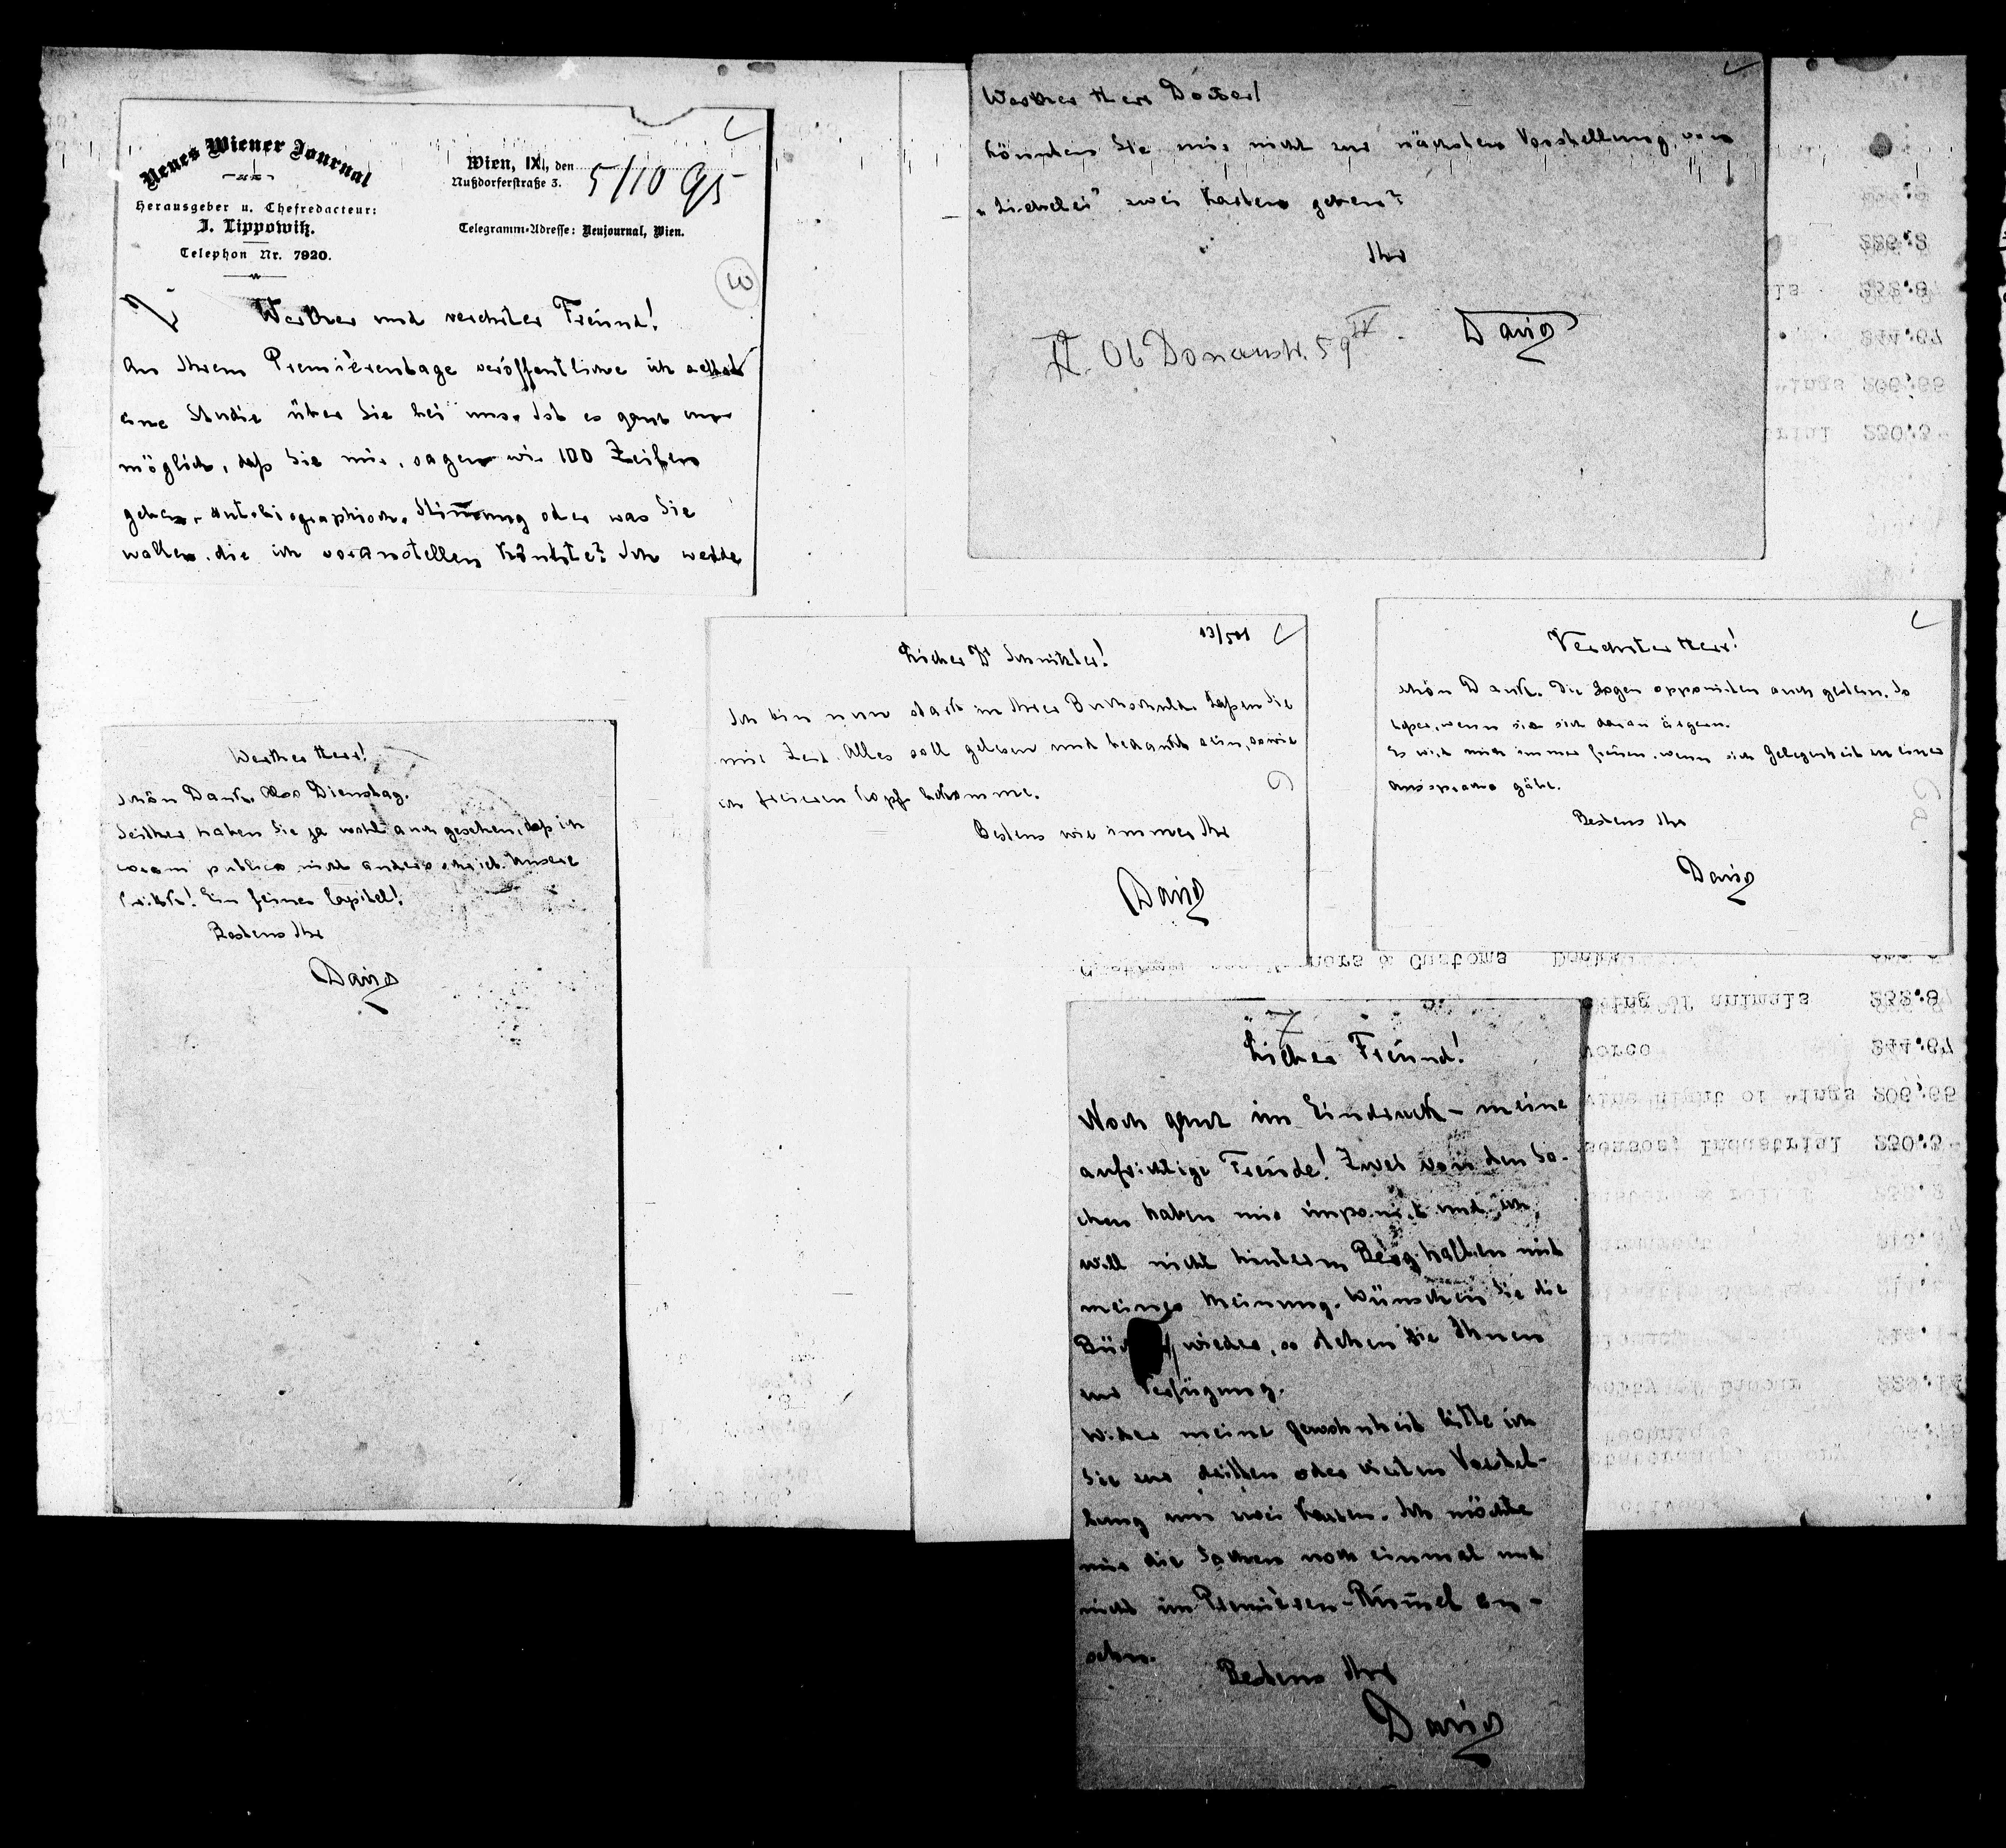 Neues Wiener Journal
Herausgeber u. Chefredacteur:
J. Lippowitz.
Telephon Nr. 7920.
Wien, IX, den 5/10 95
Nußdorferstraße 3.
Telegramm-Adresse: Neujournal, Wien.
Werther und verehrter Freund!
An Ihrem Premièrentage veröffentliche ich selbst
eine Studie über Sie bei uns. Ist es ganz un-
möglich, daß Sie mir, sagen wir 100 Zeilen
geben, Autobiographisch. Stim̄ung oder was Sie
wollen, die ich voranstellen könnte? Ich werde
Werther Herr Doctor!
Könnten Sie mir nicht zur nächsten Vorstellung von
„Liebelei" zwei Karten geben?
Ihr
David
II. Ob Donaustr. 59 IV.
13/5 01
Lieber Dr Schnitzler!
Ich bin nun stark in Ihrer Buchschuld. Laßen Sie
mir Zeit. Alles soll gelesen und bedankt sein, sowie
ich freieren Kopf bekomme.
Bestens wie immer Ihr
David
Verehrter Herr!
Schön Dank. Die Logen opponirten auch gestern. So
beßer, wenn sie sich daran ärgern.
Es wird mich immer freuen, wenn sich Gelegenheit zu einer
Aussprache gäbe.
Bestens Ihr
David
Werther Herr!
Schön Dank. Also Dienstag.
Seither haben Sie ja wohl auch gesehen, daß ich
coram publico nicht anders schrieb. Unsere
Kritik! Ein feines Capitel!
Bestens Ihr
David
7
Lieber Freund!
Noch ganz im Eindruck – meine
aufrichtige Freude! Zwei von den Sa-
chen haben mir imponirt und ich
will nicht hinterm Berg halten mit
meiner Meinung. Wünschen Sie die
wieder, so stehen sie Ihnen
zur Verfügung.
Wider meine Gewohnheit bitte ich
Sie zur dritten oder vierten Vorstel-
lung um zwei Karten. Ich möchte
mir die Sachen noch einmal und
nicht im Premièren-Rum̄el an-
sehen.
Bestens Ihr
David